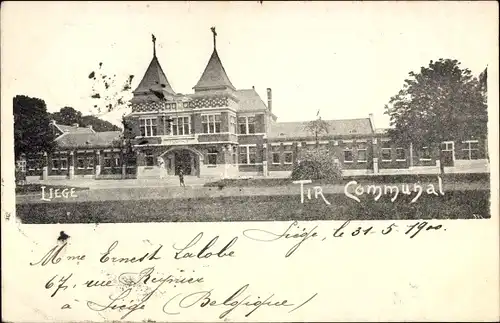 LIEGE
TIR COMMUNAL
Liège, le 31.5.900.
Mme Ernest Lalobe
67, rue Reynier
à Liège Belgique